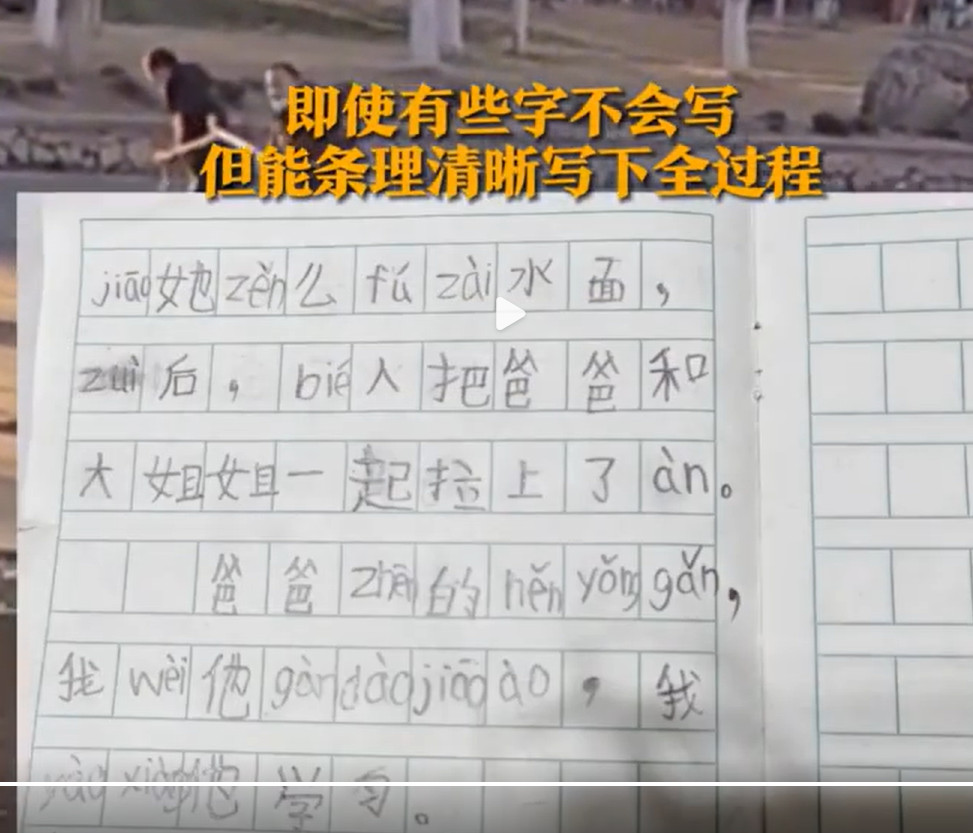 即使有些字不会写
但能条理清晰写下全过程
jiāo她zěn么fú zài水面，
zuì后，bié人把爸爸和
大姐姐一起拉上了àn。
爸爸zhēn的hěn yǒng gǎn，
我wèi他gàn dào jiāo ào，我
yào xiàng他学习。